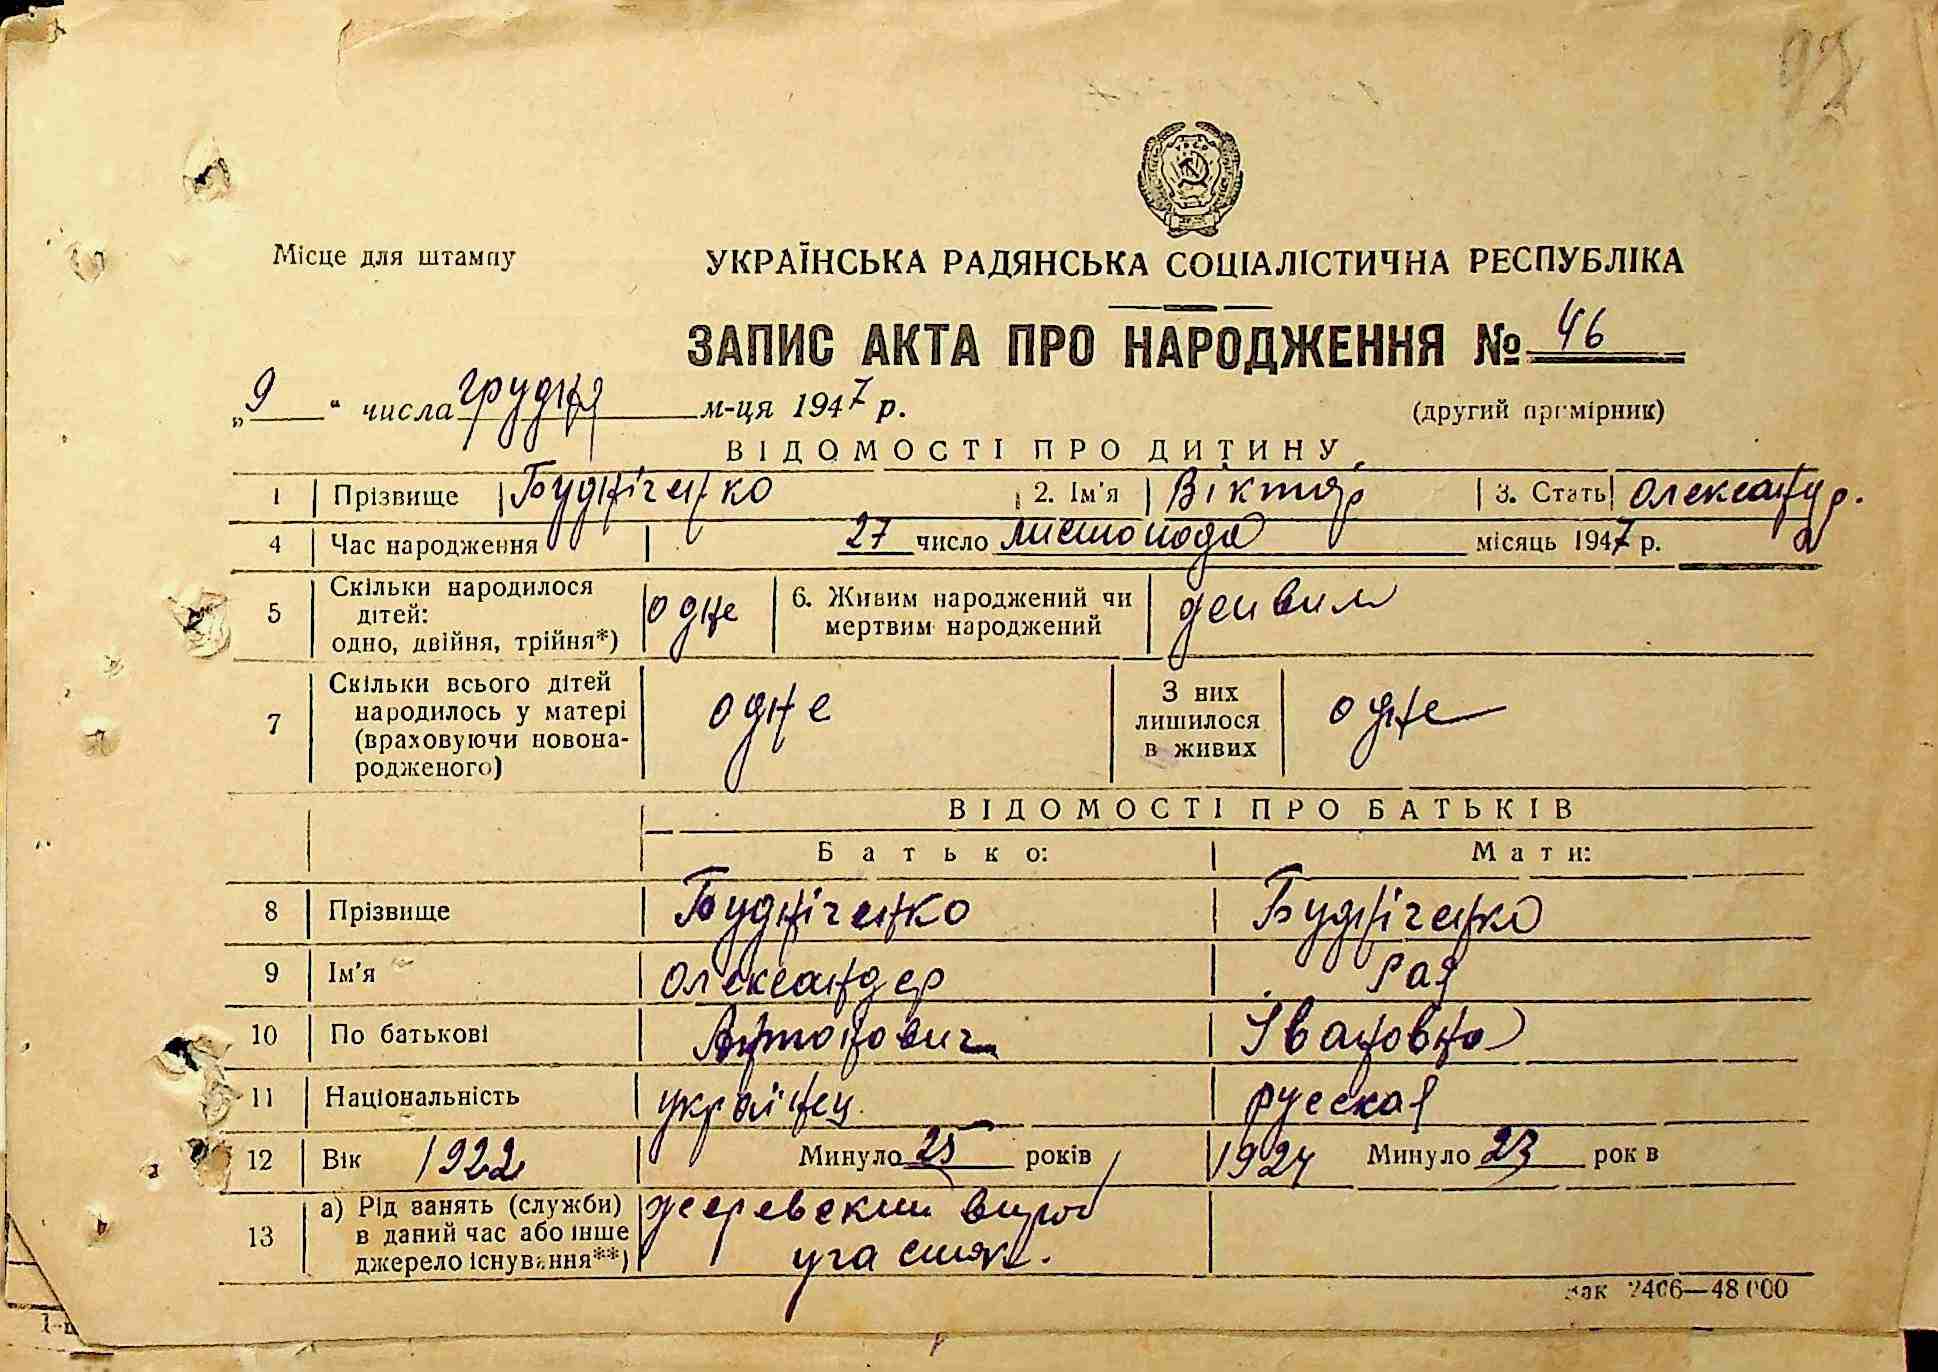 92
Місце для штампу
УКРАЇНСЬКА РАДЯНСЬКА СОЦІАЛІСТИЧНА РЕСПУБЛІКА
ЗАПИС АКТА ПРО НАРОДЖЕННЯ № 46
„9“ числа грудня м-ця 1947 р.
(другий примірник)
ВІДОМОСТІ ПРО ДИТИНУ
1 Прізвище Будніченко 2. Ім'я Віктор 3. Стать Олександр.
4 Час народження 27 число листопада місяць 1947 р.
5 Скільки народилося дітей: одно, двійня, трійня*) одне 6. Живим народжений чи мертвим народжений живим
7 Скільки всього дітей народилось у матері (враховуючи новонародженого) одне З них лишилося в живих одне
ВІДОМОСТІ ПРО БАТЬКІВ
Батько: Мати:
8 Прізвище Будніченко Будніченко
9 Ім'я Олександер Рая
10 По батькові Антонович Івановна
11 Національність українец русская
12 Вік 1922 Минуло 25 років 1924 Минуло 23 рок в
13 а) Рід занять (служби) в даний час або інше джерело існування**)
зак 2406—48000